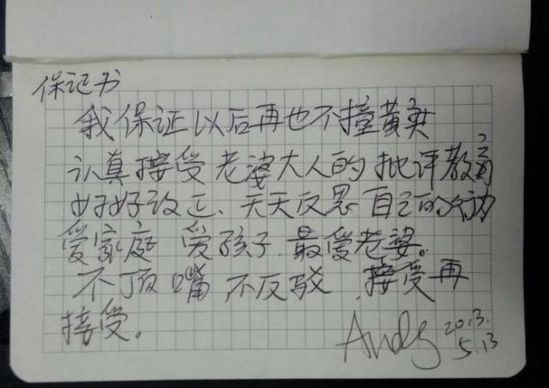 保证书
我保证以后再也不撞黄实
认真接受老婆大人的批评教育
好好改正、天天反思自己的
爱家庭 爱孩子.最爱老婆。
不顶嘴 不反驳.接受再
接受。
Andy 20.13.
5.13